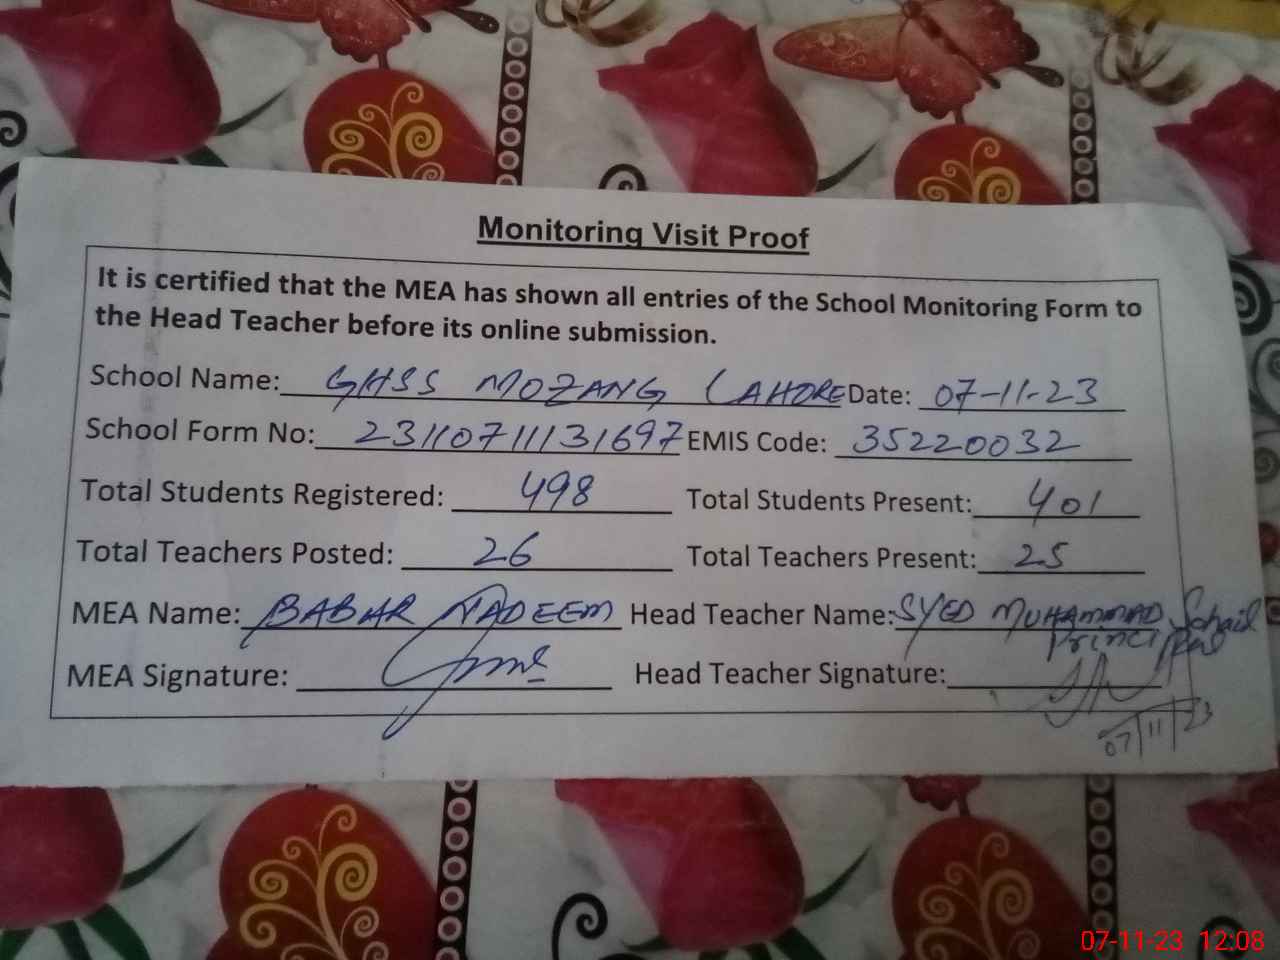 Monitoring Visit Proof
It is certified that the MEA has shown all entries of the School Monitoring Form to
the Head Teacher before its online submission.
School Name: GHSS MOZANG LAHORE Date: 07-11-23
School Form No: 23110711131697 EMIS Code: 35220032
Total Students Registered: 498 Total Students Present: 401
Total Teachers Posted: 26 Total Teachers Present: 25
MEA Name: BABAR NADEEM Head Teacher Name: SYED MUHAMMAD Sohail
Principal
MEA Signature: Head Teacher Signature:
07/11/23
07-11-23 12:08